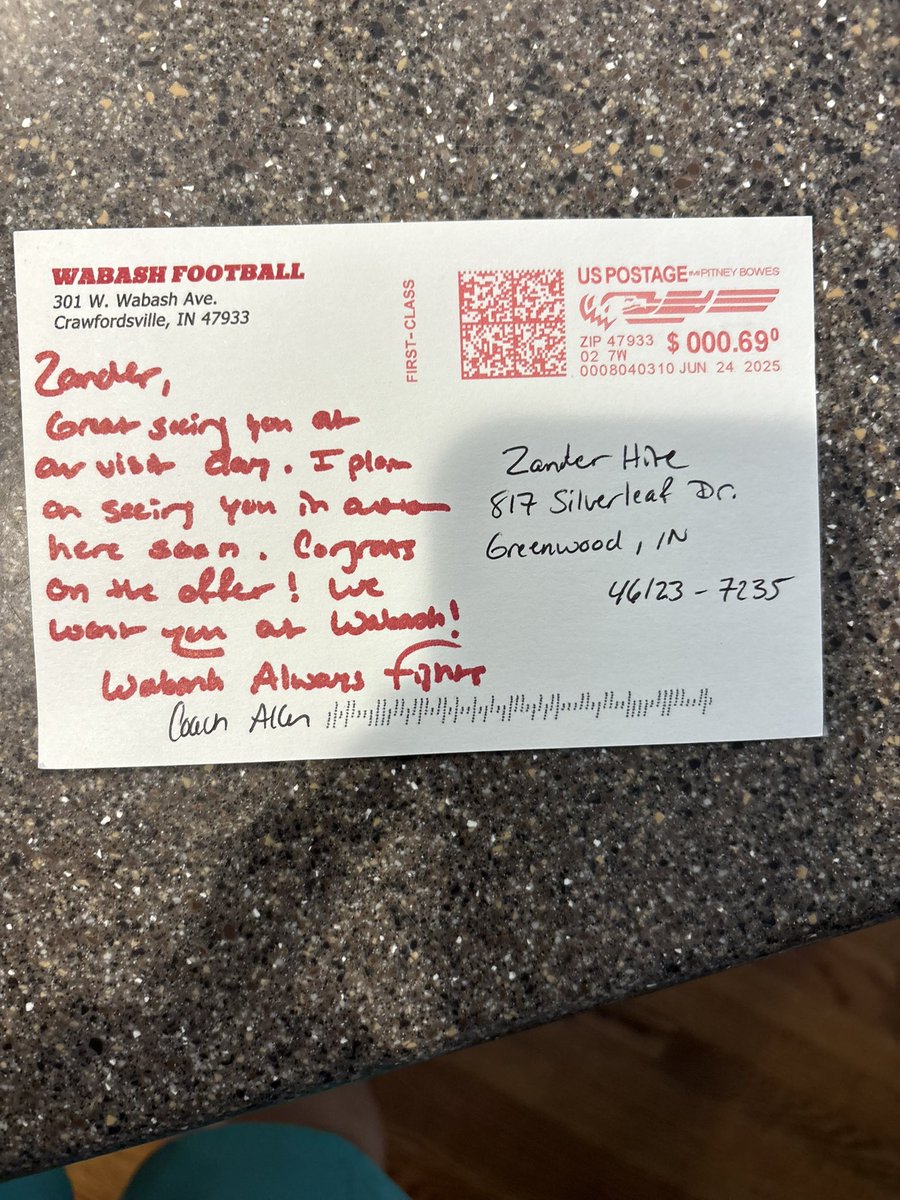 WABASH FOOTBALL
301 W. Wabash Ave.
Crawfordsville, IN 47933
FIRST-CLASS
US POSTAGE IMI PITNEY BOWES
ZIP 47933 $ 000.69⁰
02 7W
0008040310 JUN 24 2025
Zander,
Great seeing you at
our visit day. I plan
on seeing you in
here soon. Congrats
on the offer! We
want you at Wabash!
Wabash Always Fights
Coach Allen
Zander Hite
817 Silverleaf Dr.
Greenwood, IN
46123-7235